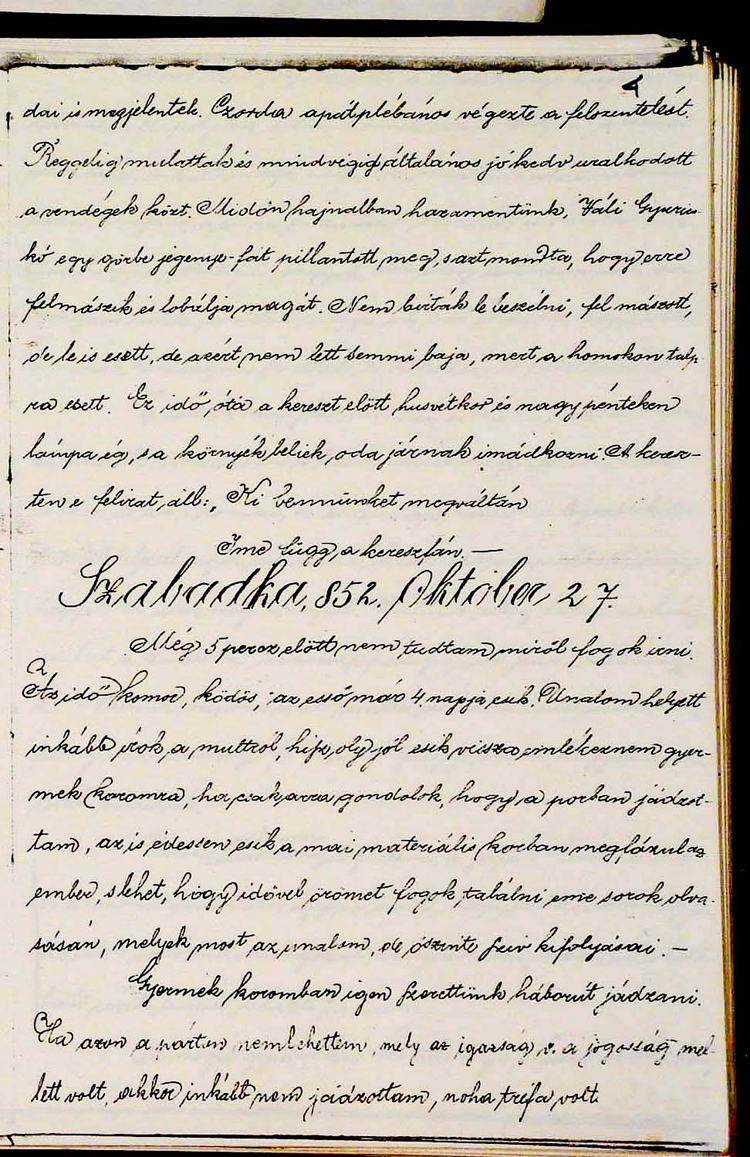 4
dai is megjelentek. Czorda apátplébános végezte a felszentelést.
Reggelig mulattak és mindvégig általános jó kedv uralkodott
a vendégek közt. Midőn hajnalban hazamentünk, Váli Gyuris-
kó egy görbe jegenye-fát pillantott meg, s azt mondta, hogy erre
felmászik és lobálja magát. Nem bírták le beszélni, fel mászott,
de le is esett, de azért nem lett semmi baja, mert a homokon talp-
ra esett. Ez idő óta a kereszt előtt husvétkor és nagy pénteken
lámpa ég, s a környék beliek oda járnak imádkozni. A keresz-
ten e felirat áll: „Ki bennünket megváltán
Ime függ a keresztfán. —
Szabadka, 852. Október 27.
Még 5 percz előtt nem tudtam miről fogok irni.
Az idő komor, ködös, az esső már 4. napja esik. Unalom helyett
inkább írok a multról, hisz oly jól esik vissza emlékeznem gyer-
mek koromra, ha csak arra gondolok, hogy a porban jádzot-
tam, az is édessen esik a mai materiális korban meglázul az
ember, s lehet, hogy idővel örömet fogok találni eme sorok olva-
sásán, melyek most az unalom, de őszinte sziv kifolyásai. —
Gyermek koromban igen szerettünk háborút jádzani.
Ha azon a párton nem lehettem, mely az igazság s. a jogosság mel-
lett volt, akkor inkább nem jádzottam, noha tréfa volt